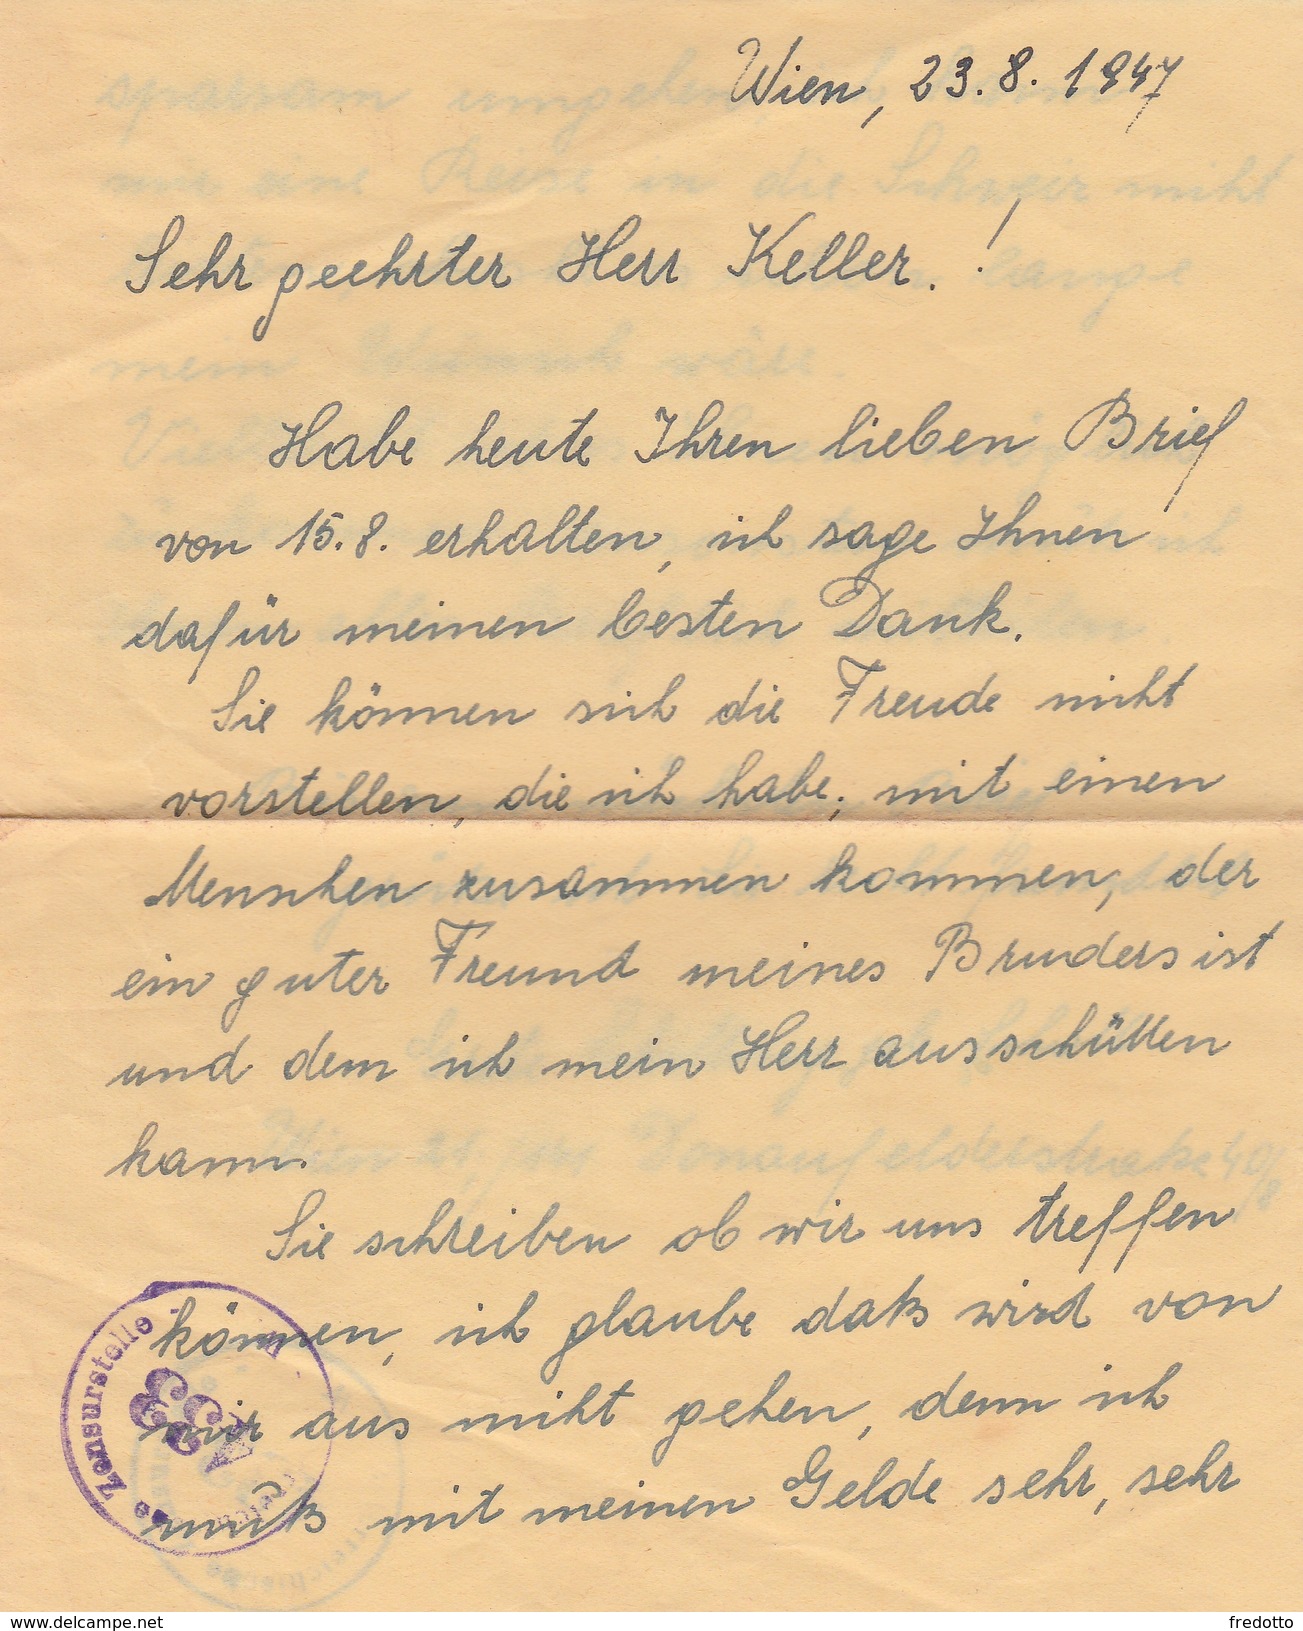 Wien, 23. 8. 1947
Sehr geehrter Herr Keller.!
Habe heute Ihren lieben Brief
von 15. 8. erhalten, ich sage Ihnen
dafür meinen besten Dank.
Sie können sich die Freude nicht
vorstellen, die ich habe, mit einen
Menschen zusammen kommen, der
ein guter Freund meines Bruders ist
und dem ich mein Herz ausschütten
kann.
Sie schreiben ob wir uns treffen
können, ich glaube daß wird von
mir aus nicht gehen, denn ich
muß mit meinen Gelde sehr, sehr
Zensurstelle
333
www.delcampe.net
fredotto